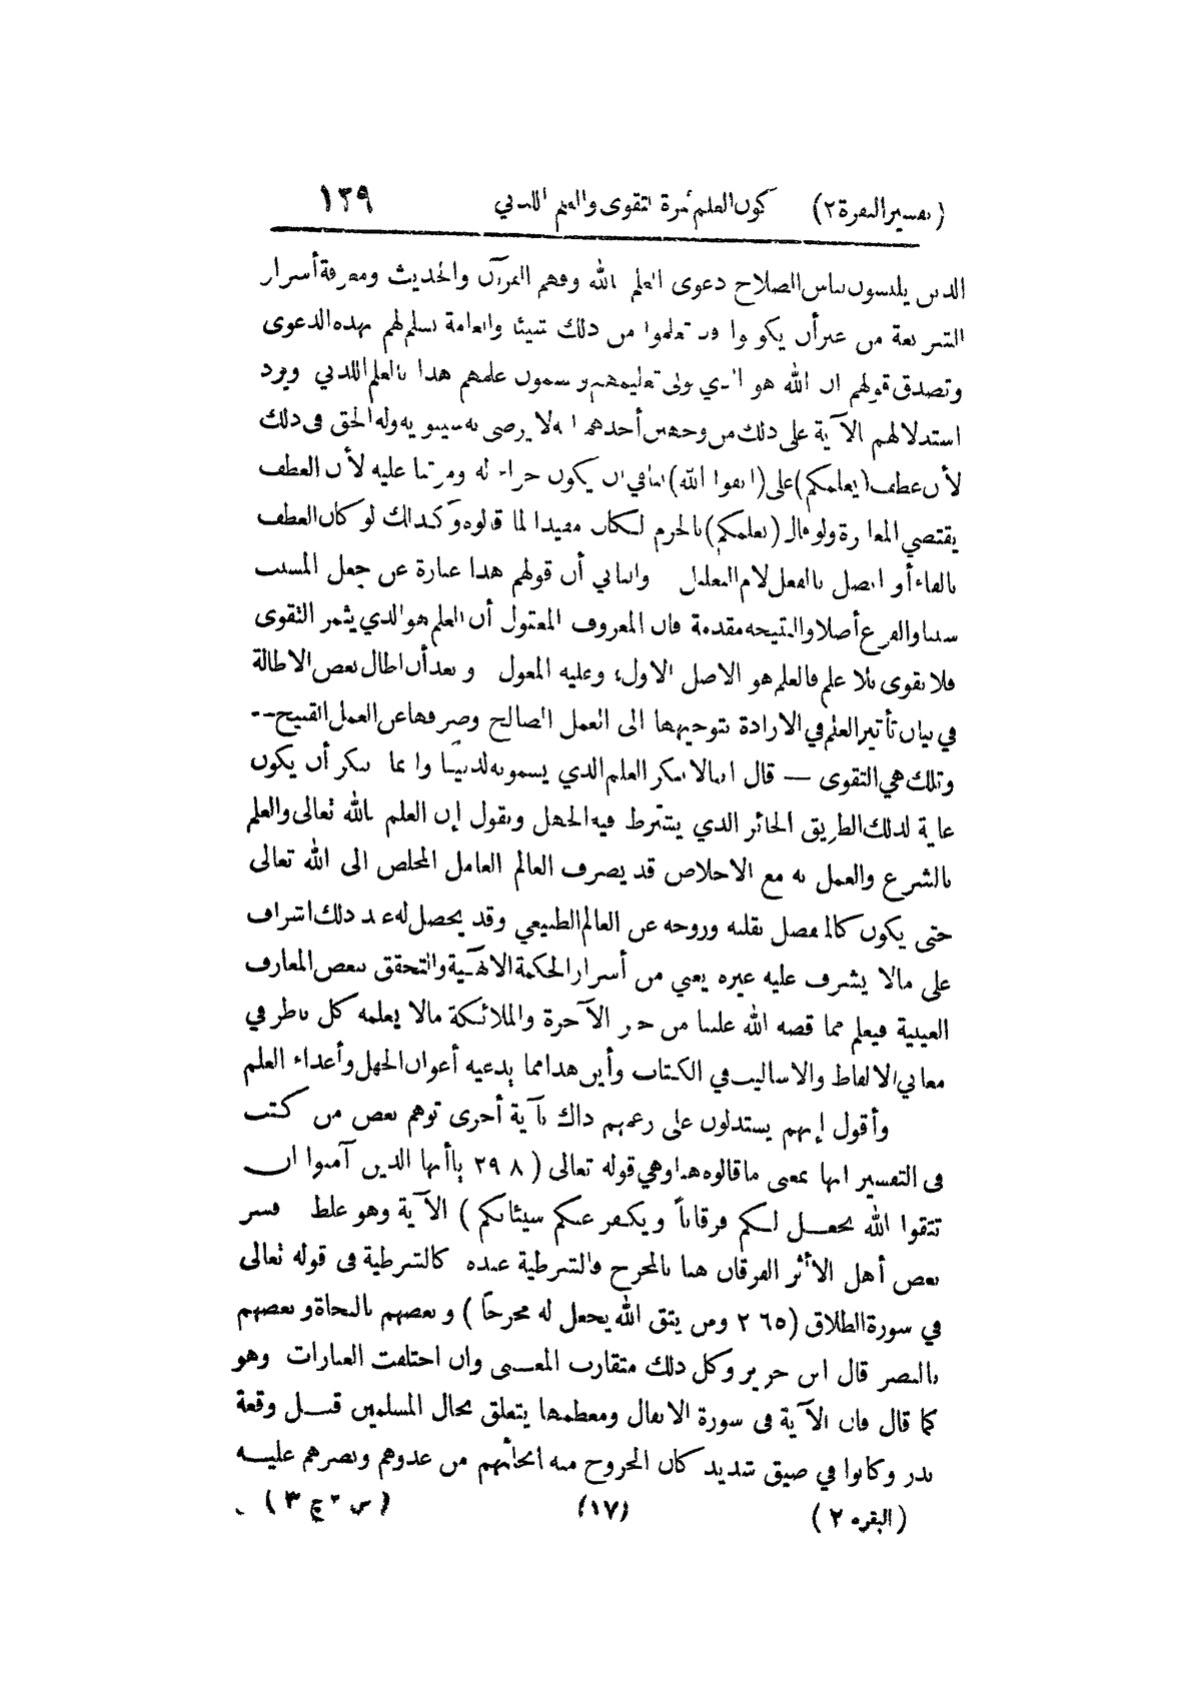 (تفسير البقرة ٢) كون العلم ثمرة التقوى والعلم اللدني ١٢٩
الذين يلبسون لباس الصلاح دعوى العلم بالله وفهم القرآن والحديث ومعرفة أسرار
الشريعة من غير أن يكونوا قد تعلموا من ذلك شيئا والعامة تسلم لهم بهذه الدعوى
وتصدق قولهم ان الله هو الذي تولى تعليمهم ويسمون علمهم هذا بالعلم اللدني ويرد
استدلالهم الآية على ذلك من وجهين أحدهما انه لا يرضى به سيبويه وله الحق في ذلك
لأن عطف (يعلمكم) على (اتقوا الله) ينافي ان يكون جزاء له ومرتبا عليه لأن العطف
يقتضي المغايرة ولو قال (يعلمكم) بالجزم لكان مفيدا لما قالوه وكذلك لو كان العطف
بالفاء أو اتصل بالفعل لام التعليل والثاني أن قولهم هذا عبارة عن جعل المسبب
سببا والفرع أصلا والنتيجة مقدمة فان المعروف المعقول أن العلم هو الذي يثمر التقوى
فلا تقوى بلا علم فالعلم هو الاصل الاول، وعليه المعول وبعد أن اطال بعض الاطالة
في بيان تأثير العلم في الارادة بتوجيهها الى العمل الصالح وصرفها عن العمل القبيح --
وتلك هي التقوى — قال اننا لا ننكر العلم الذي يسمونه لدنيا وانما ننكر أن يكون
غاية لذلك الطريق الجائر الذي يشترط فيه الجهل ونقول إن العلم بالله تعالى والعلم
بالشرع والعمل به مع الاخلاص قد يصرف العالم العامل المخلص الى الله تعالى
حتى يكون كالمنفصل بقلبه وروحه عن العالم الطبيعي وقد يحصل له عند ذلك اشراف
على مالا يشرف عليه غيره يعني من أسرار الحكمة الالهية والتحقق ببعض المعارف
الغيبية فيعلم مما قصه الله علينا من خبر الآخرة والملائكة مالا يعلمه كل ناظر في
معاني الالفاظ والاساليب في الكتاب وأين هذا مما يدعيه أعوان الجهل وأعداء العلم
وأقول إنهم يستدلون على زعمهم ذاك بآية أخرى توهم بعض من كتب
في التفسير انها بمعنى ما قالوه هنا وهي قوله تعالى (٨ ٢٩ ياأيها الذين آمنوا ان
تتقوا الله يجعل لكم فرقانا ويكفر عنكم سيئاتكم) الآية وهو غلط فسر
بعض أهل الاثر الفرقان هنا بالمخرج فالشرطية عنده كالشرطية في قوله تعالى
في سورة الطلاق (٦٥ ٢ ومن يتق الله يجعل له مخرجا) وبعضهم بالنجاة وبعضهم
بالنصر قال ابن جرير وكل ذلك متقارب المعنى وان اختلفت العبارات وهو
كما قال فان الآية في سورة الانفال ومعظمها يتعلق بحال المسلمين قبل وقعة
بدر وكانوا في ضيق شديد كان الخروج منه انجاءهم من عدوهم ونصرهم عليه
(البقره ٢) (١٧) (س ٢ ج ٣)